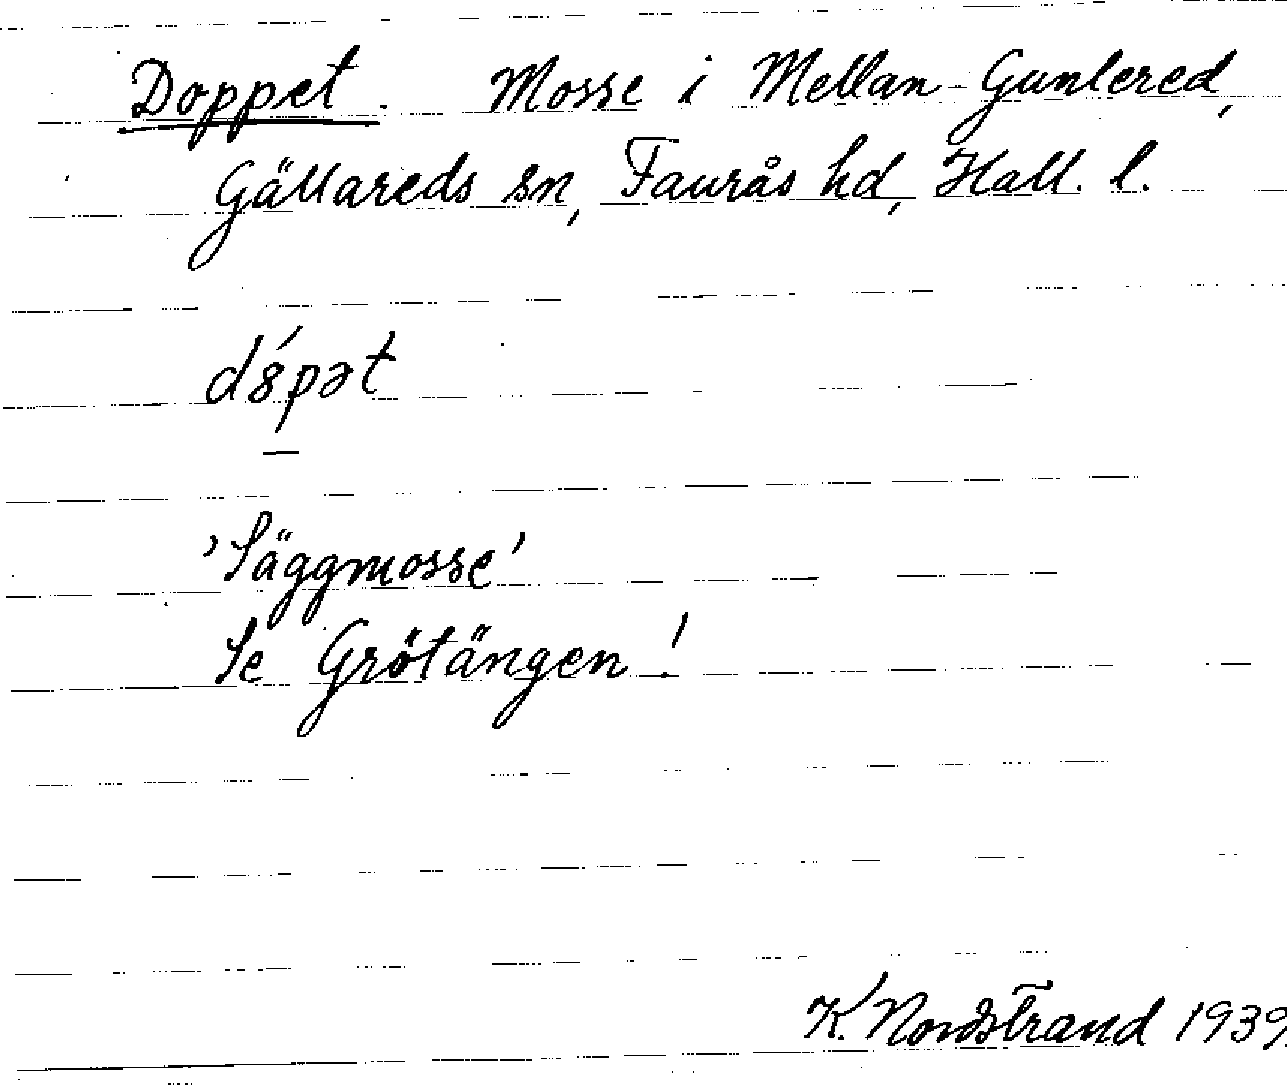 Doppet. Mosse i Mellan-Gunlered,
Gällareds sn, Faurås hd, Hall. l.
dǒ́pət
'Säggmosse'
Se Grötängen!
K. Nordstrand 1939